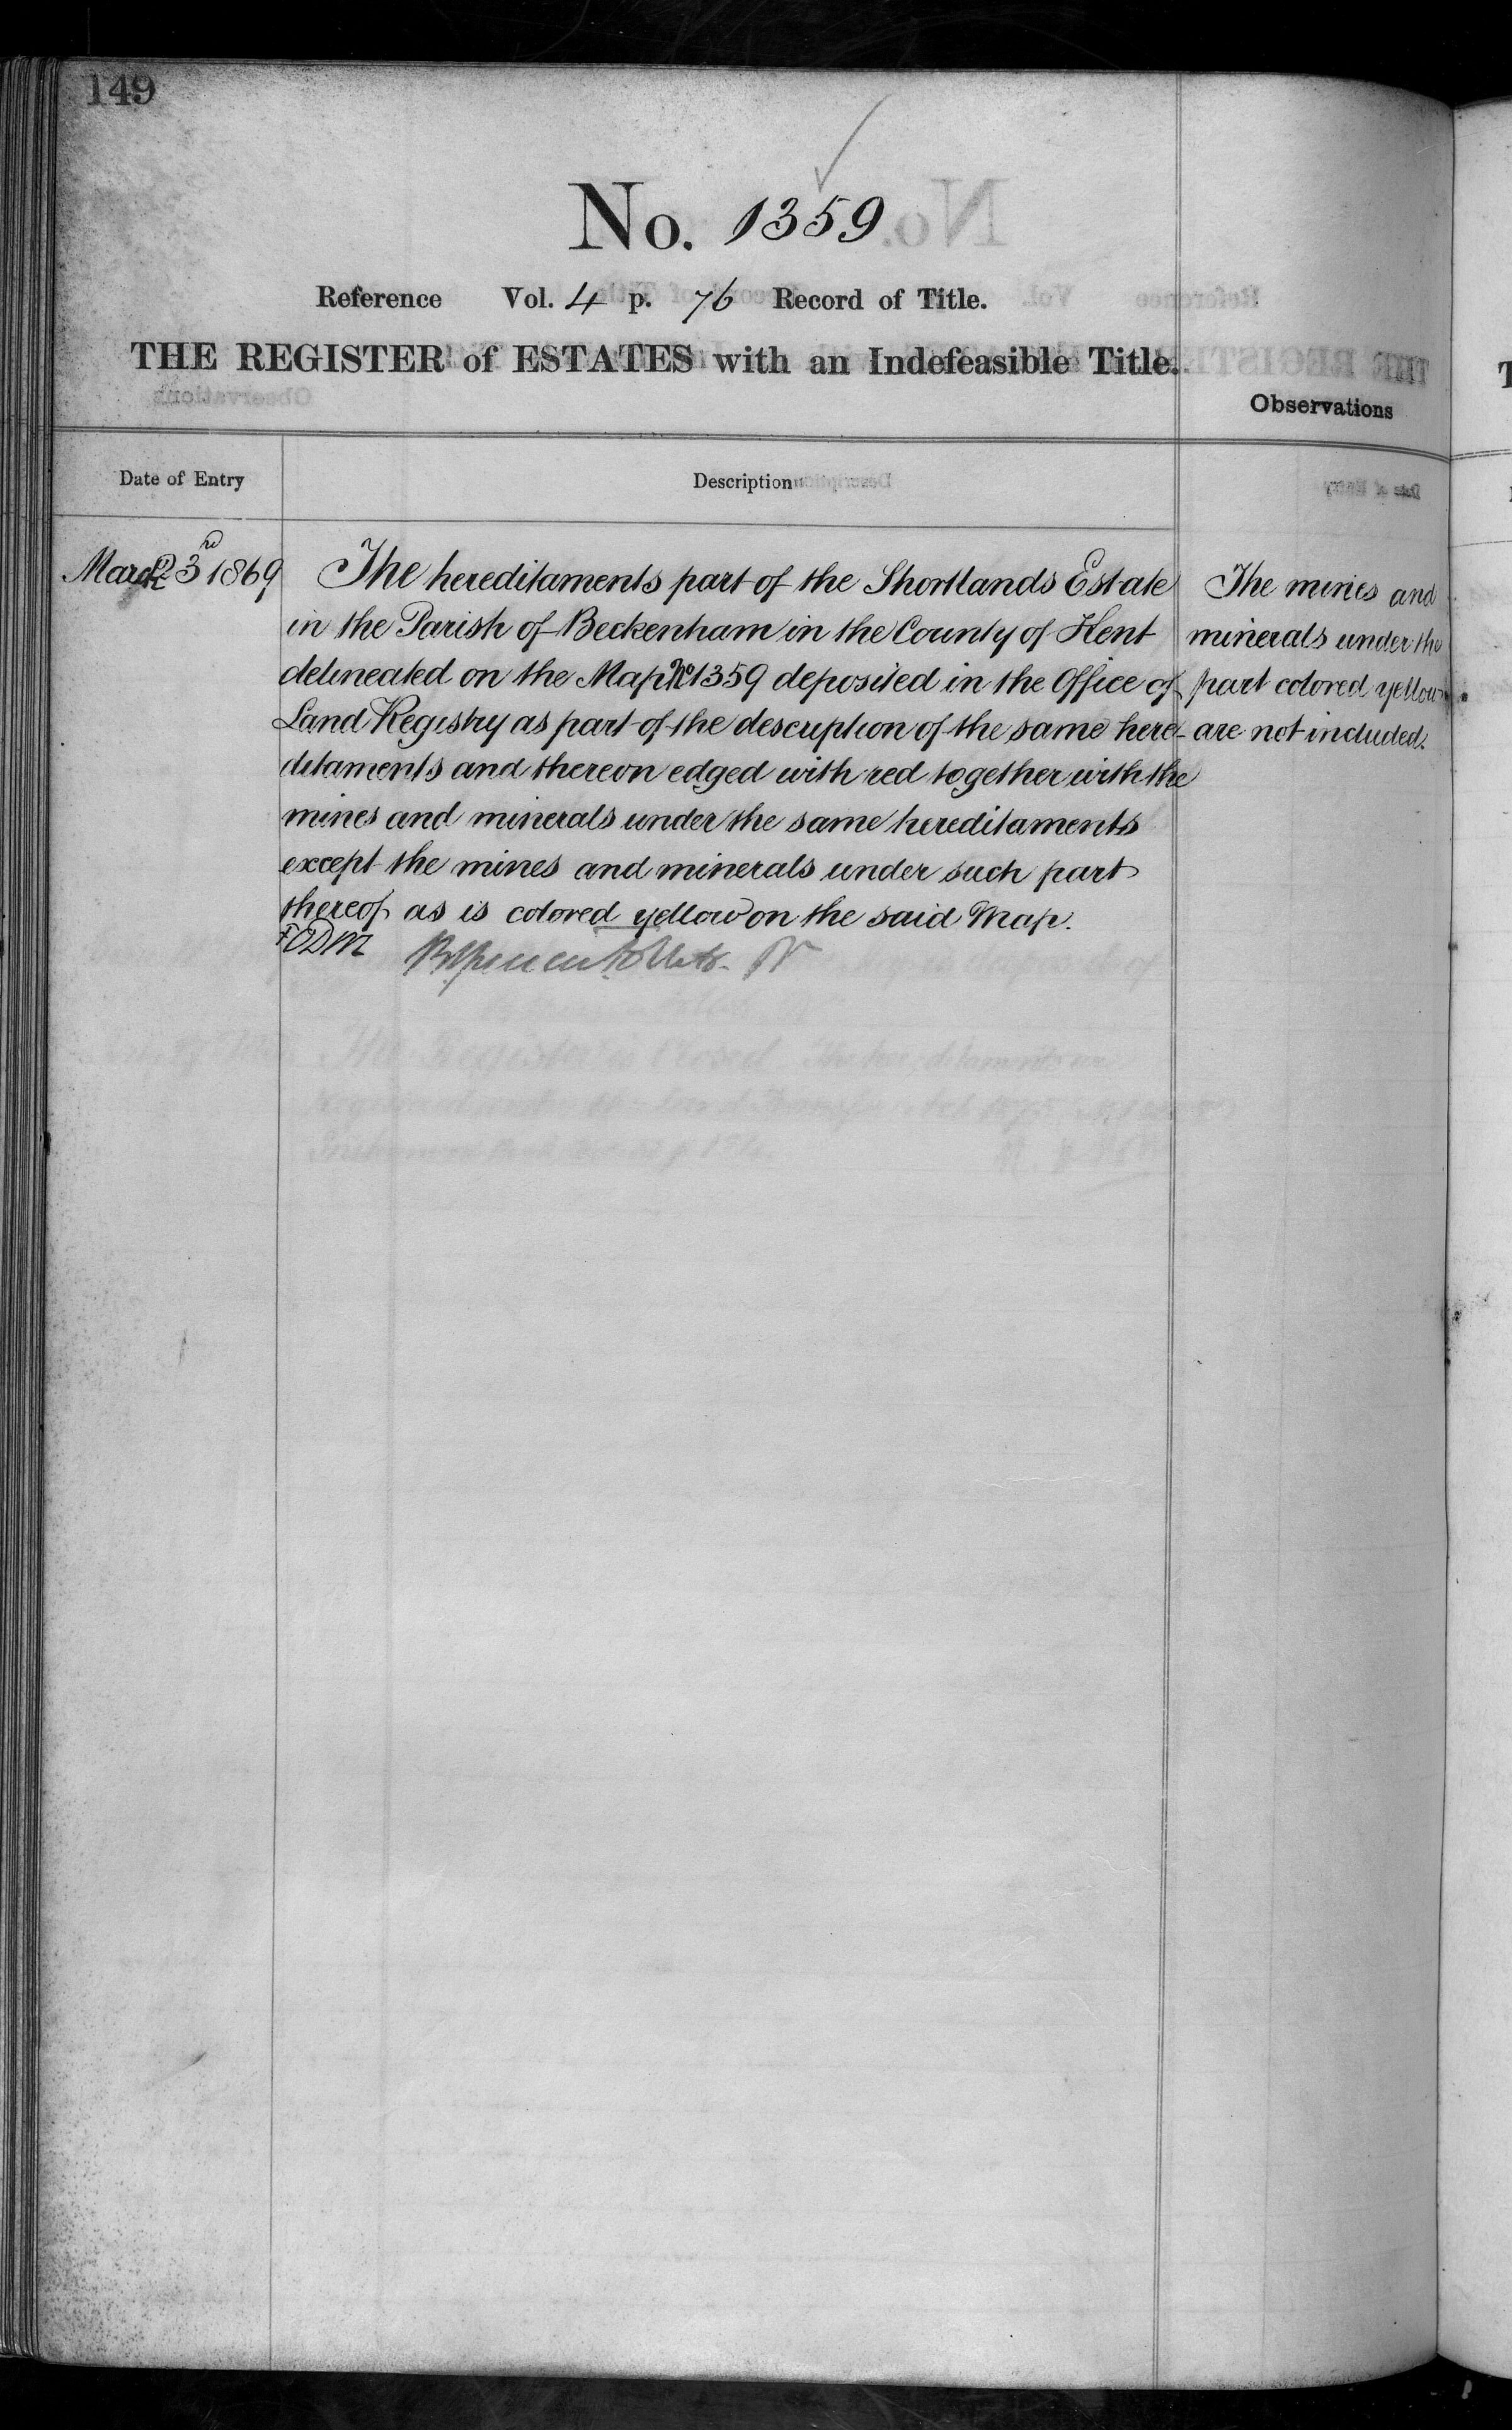 149
No. 1359
Reference Vol. 4 p. 76 Record of Title.
THE REGISTER of ESTATES with an Indefeasible Title.
Observations
Date of Entry
Description
March 23rd 1869
The hereditaments part of the Shortlands Estate
in the Parish of Beckenham in the County of Kent
delineated on the Map No 1359 deposited in the Office of
Land Registry as part of the description of the same here-
ditaments and thereon edged with red together with the
mines and minerals under the same hereditaments
except the mines and minerals under such part
thereof as is colored yellow on the said Map.
The mines and
minerals under the
part colored yellow
are not included.